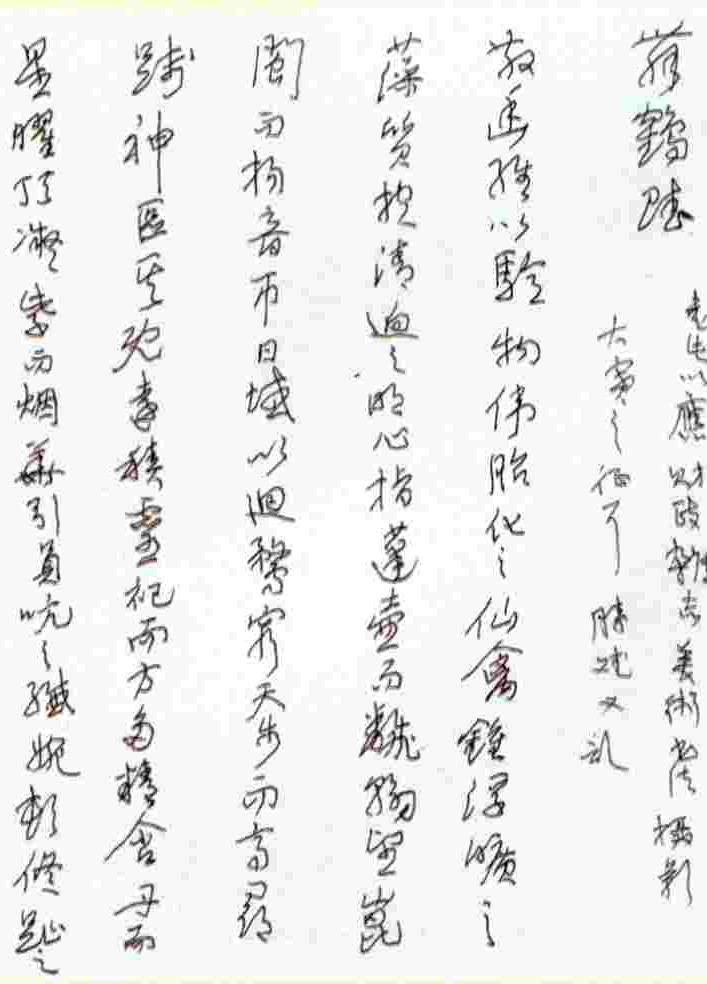 舞鶴賦
以應財政雜志美術書法攝影
大賽之征
又記
散幽經以驗物偉胎化之仙禽鍾浮曠之
藻質抱清迥之明心指蓬壺而翻翰望崑
閬而揚音帀日域以迴騖窮天步而高尋
踐神區其既積靈祀而方多精含丹而
星曜頂凝紫而烟華引員吭之纖婉頓修趾之